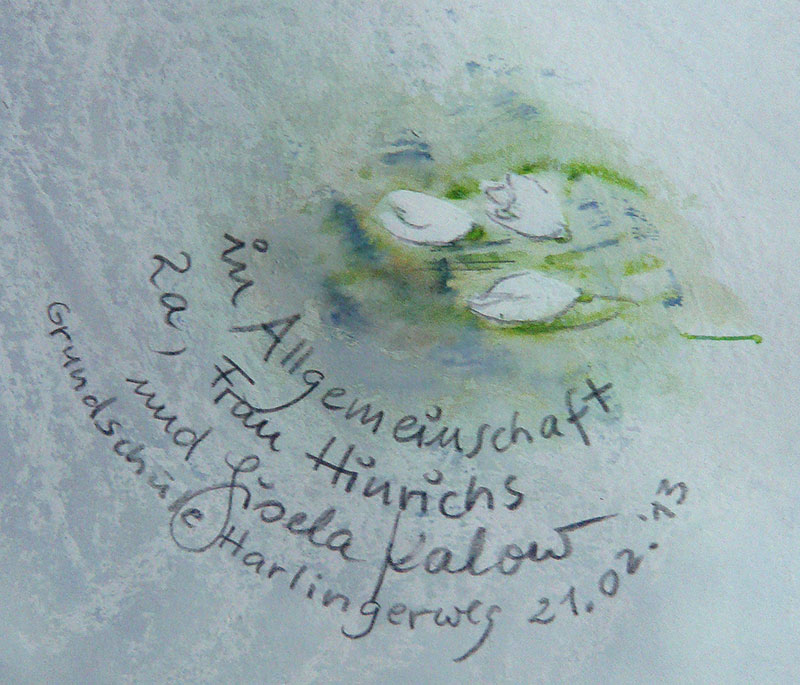 in Allgemeinschaft
2a, Frau Hinrichs
und Gisela Kalow
Grundschule Harlingerweg 21.02.'13